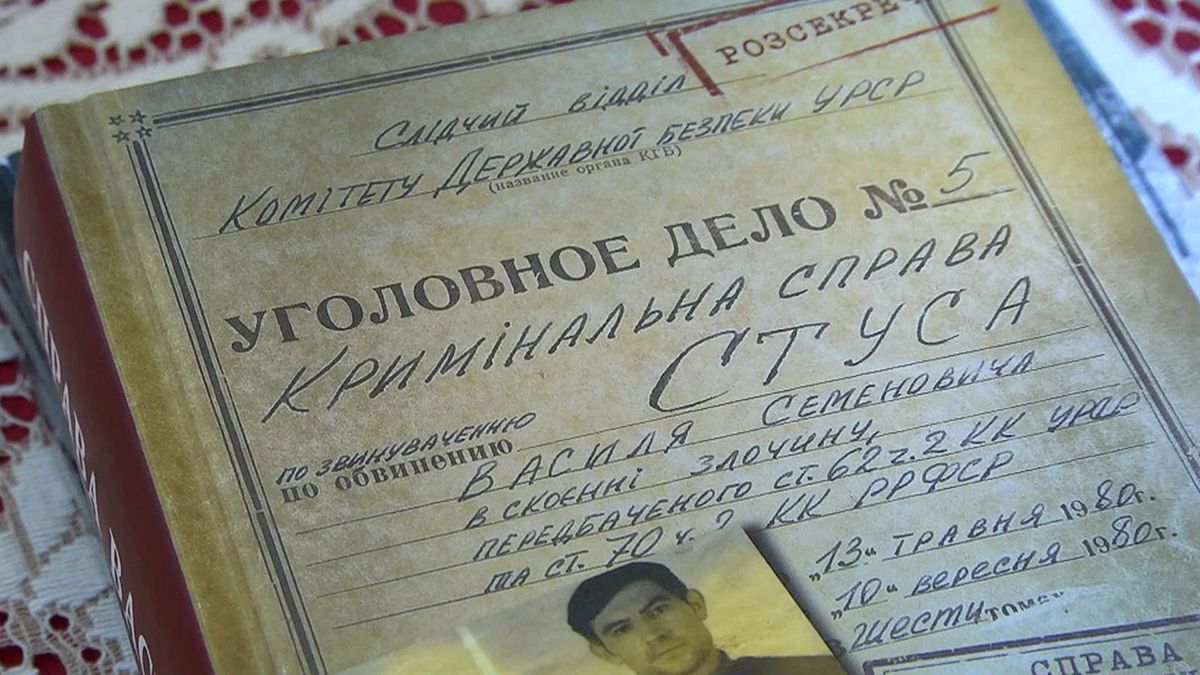 РОЗСЕКРЕ
Слідчий відділ
Комітету Державної безпеки УРСР
(название органа КГБ)
УГОЛОВНОЕ ДЕЛО № 5
Кримінальна справа
СТУСА
по звинуваченню
по обвинению
Василя Семеновича
в скоєнні злочину,
передбаченого ст. 62 ч. 2 КК УРСР
та ст. 70 ч. 2 КК РРФСР
„13“ травня 1980г.
„10“ вересня 1980г.
В шести томах
СПРАВА
СПРАВА ВАС